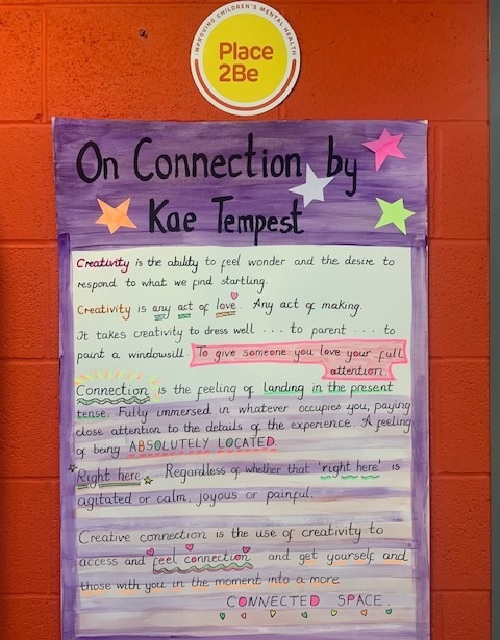 IMPROVING CHILDREN'S MENTAL HEALTH
Place
2Be
On Connection by
Kae Tempest
Creativity is the ability to feel wonder and the desire to
respond to what we find startling.
Creativity is any act of love. Any act of making.
It takes creativity to dress well ... to parent ... to
paint a windowsill. To give someone you love your full
attention.
Connection is the feeling of landing in the present
tense. Fully immersed in whatever occupies you, paying
close attention to the details of the experience. A feeling
of being ABSOLUTELY LOCATED.
Right here. Regardless of whether that 'right here' is
agitated or calm, joyous or painful.
Creative connection is the use of creativity to
access and feel connection and get yourself and
those with you in the moment into a more
CONNECTED SPACE.